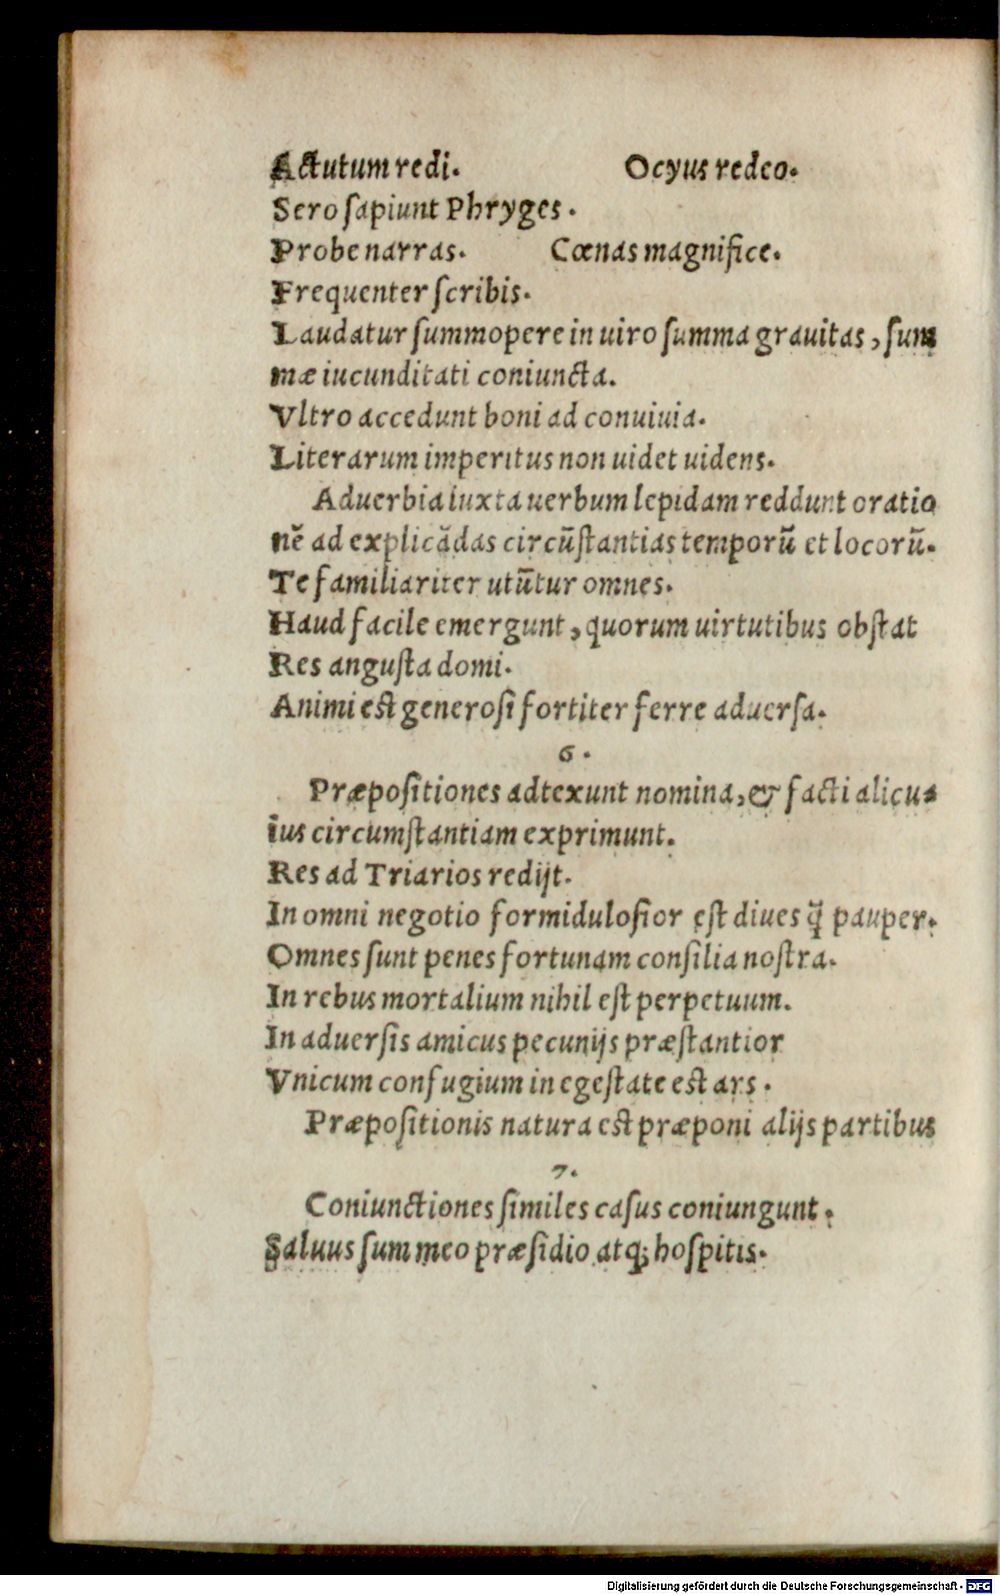 Actutum redi. Ocyus redeo.
Sero ſapiunt Phryges.
Probe narras. Cœnas magnifice.
Frequenter ſcribis.
Laudatur ſummopere in uiro ſumma grauitas, ſum
mæ iucunditati coniuncta.
Vltro accedunt boni ad conuiuia.
Literarum imperitus non uidet uidens.
Aduerbia iuxta uerbum lepidam reddunt oratio
nē ad explicādas circūſtantias temporū et locorū.
Te familiariter utūtur omnes.
Haud facile emergunt, quorum uirtutibus obſtat
Res anguſta domi.
Animi eſt generoſi fortiter ferre aduerſa.
6.
Præpoſitiones adtexunt nomina, & facti alicu⸗
ius circumſtantiam exprimunt.
Res ad Triarios redijt.
In omni negotio formiduloſior eſt diues q̃ pauper.
Omnes ſunt penes fortunam conſilia noſtra.
In rebus mortalium nihil eſt perpetuum.
In aduerſis amicus pecunijs præſtantior
Vnicum confugium in egeſtate eſt ars.
Præpoſitionis natura eſt præponi alijs partibus
7.
Coniunctiones ſimiles caſus coniungunt.
Saluus ſum meo præſidio atq; hoſpitis.
Digitalisierung gefördert durch die Deutsche Forschungsgemeinschaft - DFG